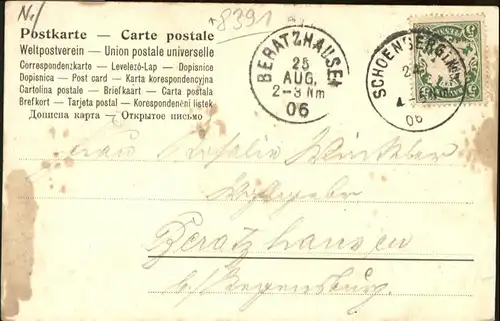 No 1
*8391
Postkarte — Carte postale
Weltpostverein — Union postale universelle
Correspondenzkarte — Levelező-Lap — Dopisnice
Dopisnica — Post card — Karta korespondencyjna
Cartolina postale — Briefkaart — Carta postala
Brefkort — Tarjeta postal — Korespondenčni listek
Дописна карта — Открытое письмо
BERATZHAUSEN
25
AUG.
2-3 Nm
06
SCHOENBERG
06
Frau Rosalie Winkler
Beratzhausen
b/Regensburg.